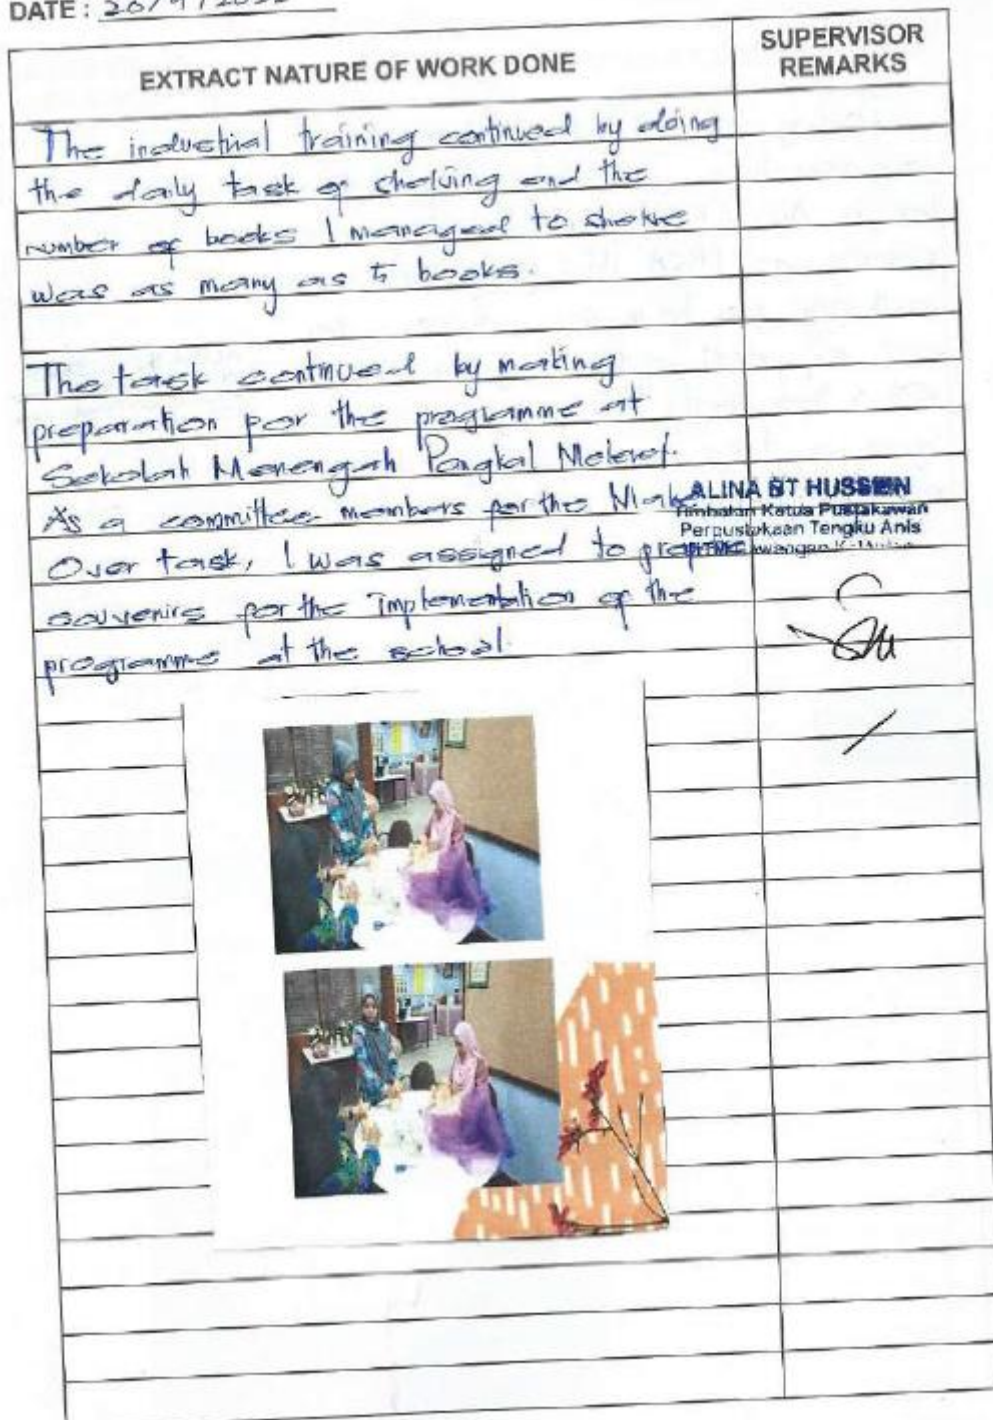 DATE :
EXTRACT NATURE OF WORK DONE
SUPERVISOR
REMARKS
The industrial training continued by doing
the daily task of shelving and the
number of books I managed to shelve
was as many as 5 books.
The task continued by making
preparation for the programme at
Sekolah Menengah Pangkal
As a committee members for the
Over task, I was assigned to
souvenirs for the implementation of the
programme at the school.
ALINA BT HUSSEIN
Timbalan Ketua Pustakawan
Perpustakaan Tengku Anis